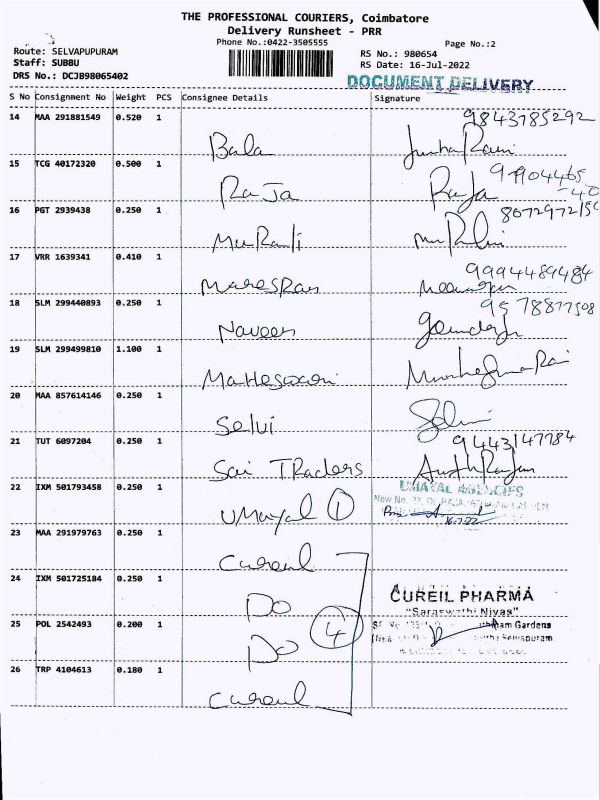 THE PROFESSIONAL COURIERS, Coimbatore
Delivery Runsheet - PRR
Phone No.:0422-3505555
Page No.:2
Route: SELVAPUPURAM
Staff: SUBBU
DRS No.: DCJB98065402
RS No.: 980654
RS Date: 16-Jul-2022
DOCUMENT DELIVERY
S No Consignment No Weight PCS Consignee Details Signature
14 MAA 291881549 0.520 1 9843785292
Bala
15 TCG 40172320 0.500 1
RaJa Raja
16 PGT 2939438 0.250 1
MuRali
17 VRR 1639341 0.410 1 9994489484
MahesRan
18 SLM 299440893 0.250 1 9578877508
Naveen
19 SLM 299499810 1.100 1
Maheswari
20 MAA 857614146 0.250 1
Selvi Selvi
21 TUT 6097204 0.250 1 9443147784
Sai TRaders
22 IXM 501793458 0.250 1 UMAYAL AGENCIES
UMayal 1
23 MAA 291979763 0.250 1
Cureil
24 IXM 501725184 0.250 1 CUREIL PHARMA
Do "Saraswathi Nivas"
25 POL 2542493 0.200 1 Gardens
4 Selvapuram
Do
26 TRP 4104613 0.180 1
Cureil